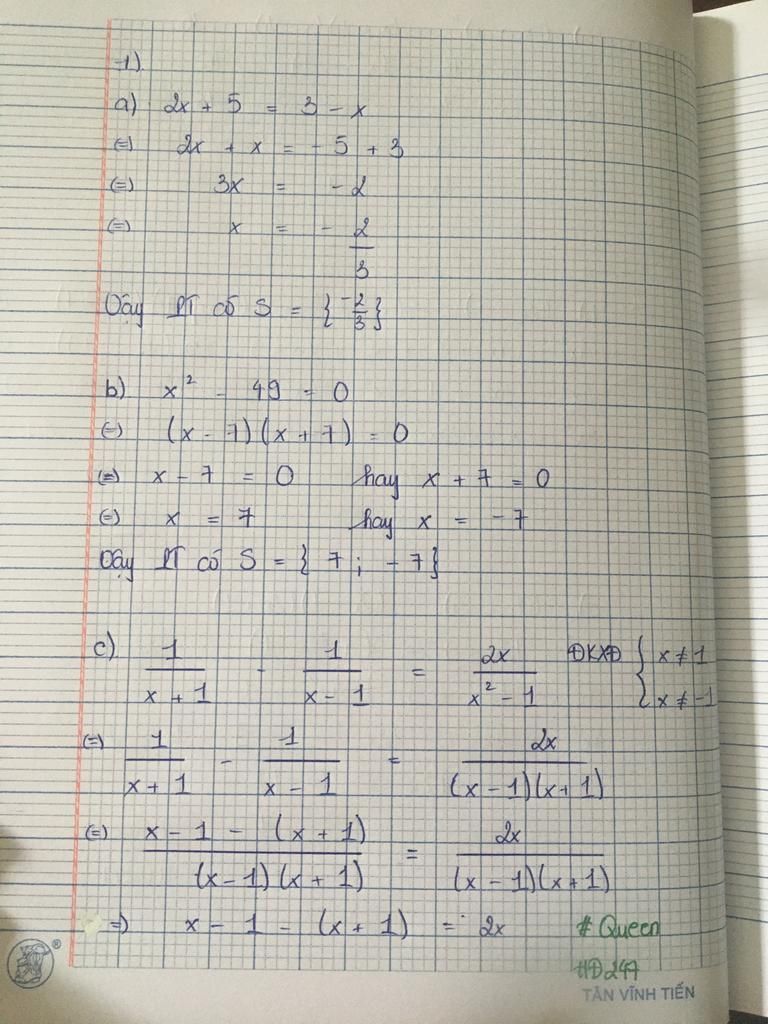 1)
a) 2x + 5 = 3 - x
(=) 2x + x = - 5 + 3
(=) 3x = - 2
(=) x = - 2/3
Vậy PT có S = { -2/3 }
b) x² - 49 = 0
(=) (x - 7)(x + 7) = 0
(=) x - 7 = 0 hay x + 7 = 0
(=) x = 7 hay x = - 7
Vậy PT có S = { 7 ; - 7 }
c) 1/(x + 1) - 1/(x - 1) = 2x/(x² - 1) ĐKXĐ { x ≠ 1 x ≠ -1
(=) 1/(x + 1) - 1/(x - 1) = 2x/((x - 1)(x + 1))
(=) (x - 1 - (x + 1))/((x - 1)(x + 1)) = 2x/((x - 1)(x + 1))
=) x - 1 - (x + 1) = 2x
# Queen
#HĐ247
®
TÂN VĨNH TIẾN